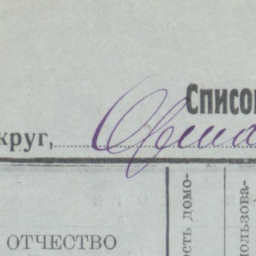 Списо
круг,
ОТЧЕСТВО
сть домо-
ользова-